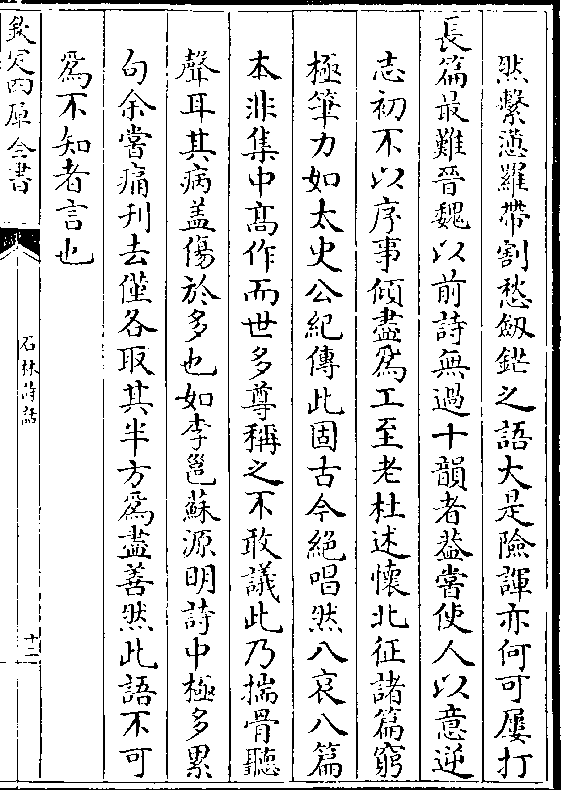 然繫懣羅帶割愁劔鋩之語大是險諢亦何可屢打
長篇最難晉魏以前詩無過十韻者葢嘗使人以意逆
志初不以序事傾盡爲工至老杜述懷北征諸篇窮
極筆力如太史公紀傳此固古今絶唱然八哀八篇
本非集中髙作而世多尊稱之不敢議此乃揣骨聽
聲耳其病盖傷於多也如李邕蘇源明詩中極多累
句余嘗痛刋去僅各取其半方爲盡善然此語不可
爲不知者言也
欽定四庫全書
石林詩話
十二